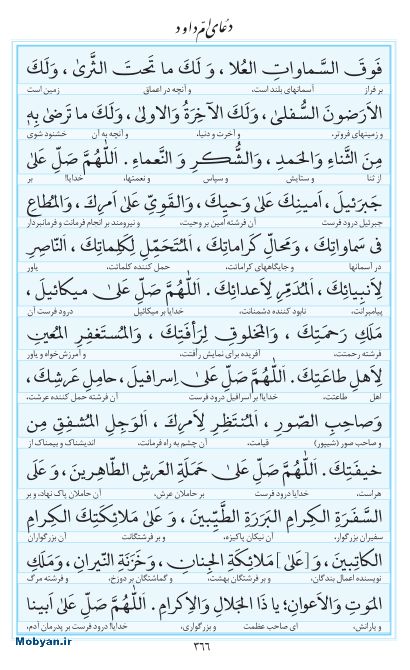 دعای امّ داود
فَوقَ السَّماواتِ العُلا، وَ لَكَ ما تَحتَ الثَّرىٰ، وَلَكَ
بر فراز آسمانهای بلند است، و آنچه در اعماق زمین است
الاَرَضونَ السُّفلىٰ، وَلَكَ الآخِرَةُ وَالاولىٰ، وَلَكَ ما تَرضىٰ بِهِ
و زمینهای فروتر، و آخرت و دنیا، و آنچه به آن خشنود شوی
مِنَ الثَّناءِ وَالحَمدِ، وَالشُّكرِ وَ النَّعماءِ. اَللّٰهُمَّ صَلِّ عَلىٰ
از ثنا و ستایش و سپاس و نعمتها، خدایا! بر
جَبرَئيلَ، اَمينِكَ عَلىٰ وَحيِكَ، وَالقَوِيِّ عَلىٰ اَمرِكَ، وَالمُطاعِ
جبرئیل درود فرست آن فرشته امین بر وحیت، و نیرومند بر انجام فرمانت و فرمانبردار
فى سَماواتِكَ، وَمَحالِّ كَراماتِكَ، اَلمُتَحَمِّلِ لِكَلِماتِكَ، اَلنّاصِرِ
در آسمانها و جایگاههای کرامانت، حمل کننده کلمانت، یاور
لِاَنبِيائِكَ، اَلمُدَمِّرِ لِاَعدائِكَ. اَللّٰهُمَّ صَلِّ عَلىٰ ميكائيلَ،
پیامبرانت، نابود کننده دشمنانت، خدایا بر میکائیل درود فرست آن
مَلَكِ رَحمَتِكَ، وَالمَخلوقِ لِرَأفَتِكَ، وَالمُستَغفِرِ المُعينِ
فرشته رحمتت، آفریده برای نمایش رأفتت، و آمرزش‌خواه و یاور
لِاَهلِ طاعَتِكَ. اَللّٰهُمَّ صَلِّ عَلىٰ اِسرافيلَ، حامِلِ عَرشِكَ،
اهل طاعتت، خدایا! بر اسرافیل درود فرست آن فرشته حمل کننده عرشت،
وَصاحِبِ الصّورِ، اَلمُنتَظِرِ لِاَمرِكَ، اَلوَجِلِ المُشفِقِ مِن
و صاحب صور (شیپور) قیامت، آن چشم به راه فرمانت، اندیشناک و بیمناک از
خيفَتِكَ. اَللّٰهُمَّ صَلِّ عَلىٰ حَمَلَةِ العَرشِ الطّاهِرينَ، وَ عَلَى
هراست، خدایا درود فرست بر حاملان عرش، آن حاملان پاک نهاد، و بر
السَّفَرَةِ الكِرامِ البَرَرَةِ الطَّيِّبينَ، وَ عَلىٰ مَلائِكَتِكَ الكِرامِ
سفیران بزرگوار، آن نیکان پاکیزه، و بر فرشتگانت آن بزرگواران
الكاتِبينَ، وَ [عَلىٰ] مَلائِكَةِ الجِنانِ، وَخَزَنَةِ النّيرانِ، وَمَلَكِ
نویسنده اعمال بندگان، و بر فرشتگان بهشت، و گماشتگان بر دوزخ، و فرشته مرگ
المَوتِ وَالاَعوانِ؛ يا ذَا الجَلالِ وَالاِكرامِ. اَللّٰهُمَّ صَلِّ عَلىٰ اَبينا
و یارانش، ای صاحب عظمت و بزرگواری، خدایا! درود فرست بر پدرمان آدم،
۳۶۶
Mobyan.ir